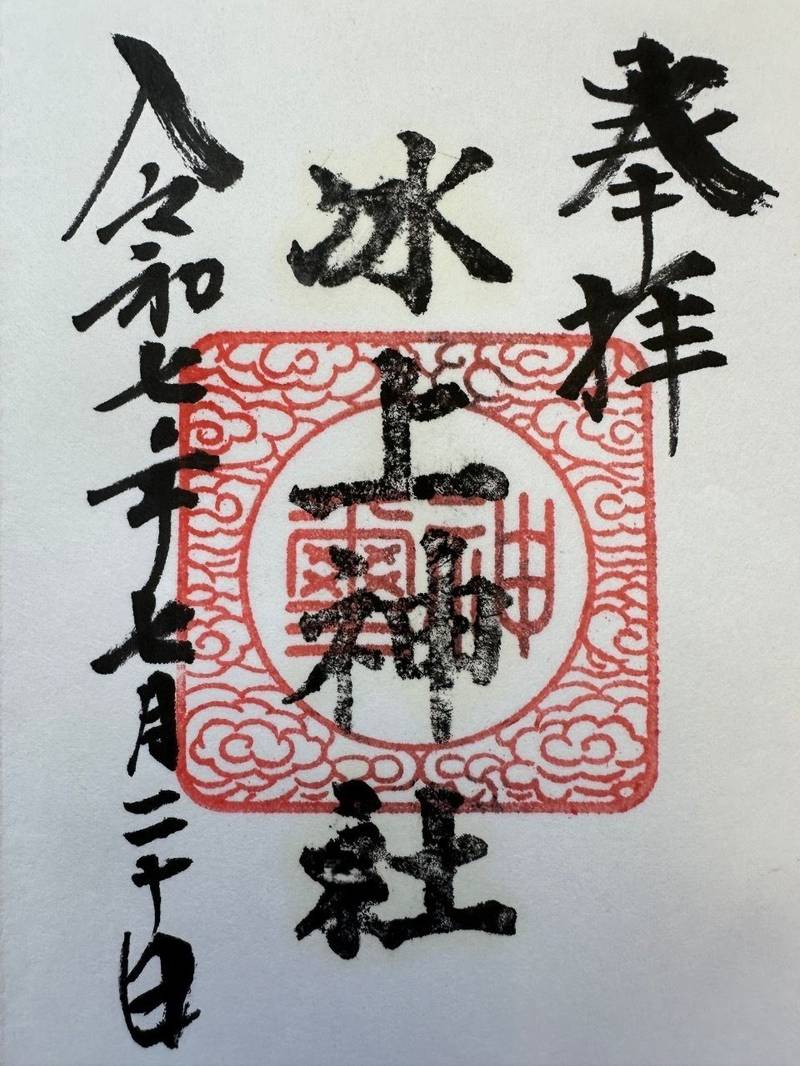 奉拝
冰上神社
神璽
令和七年七月二十日